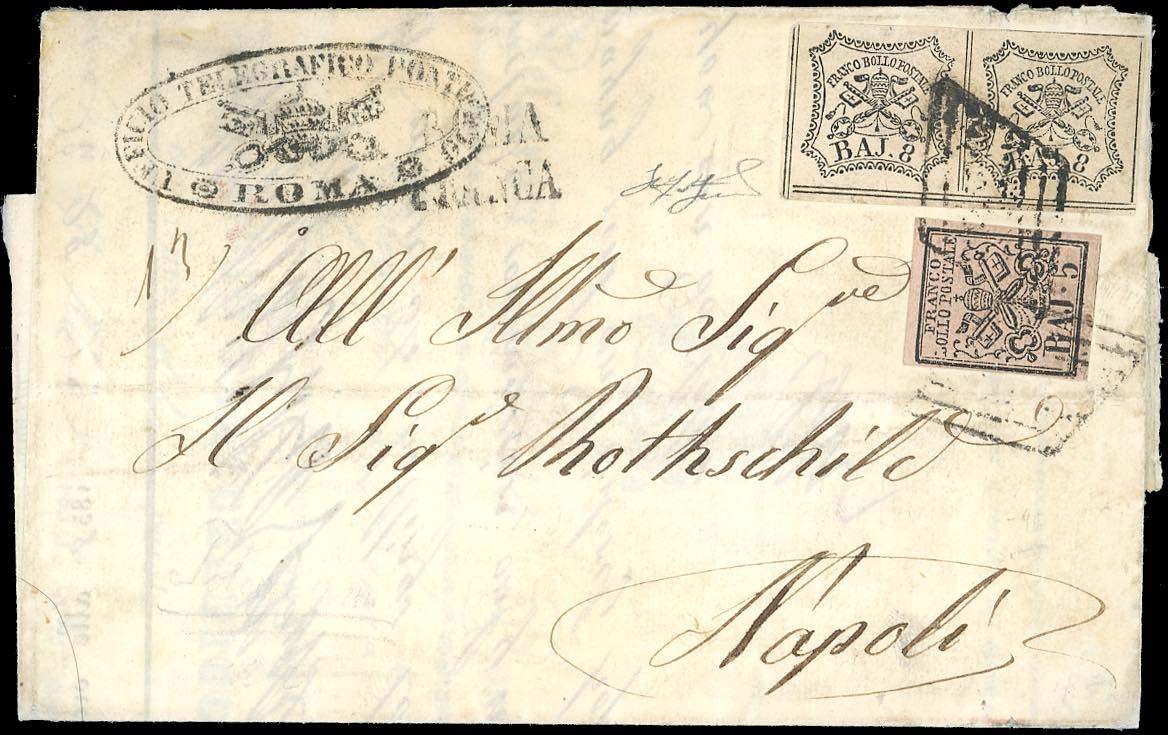 UFFICIO TELEGRAFICO PONTIFICIO
ROMA
ROMA
FRANCA
FRANCO BOLLO POSTALE
BAJ. 8
FRANCO BOLLO POSTALE
BAJ. 8
FRANCO
BOLLO POSTALE
BAJ. 5
13)
All' Illmo Sig.re
Il Sig.e Rothschild
Napoli